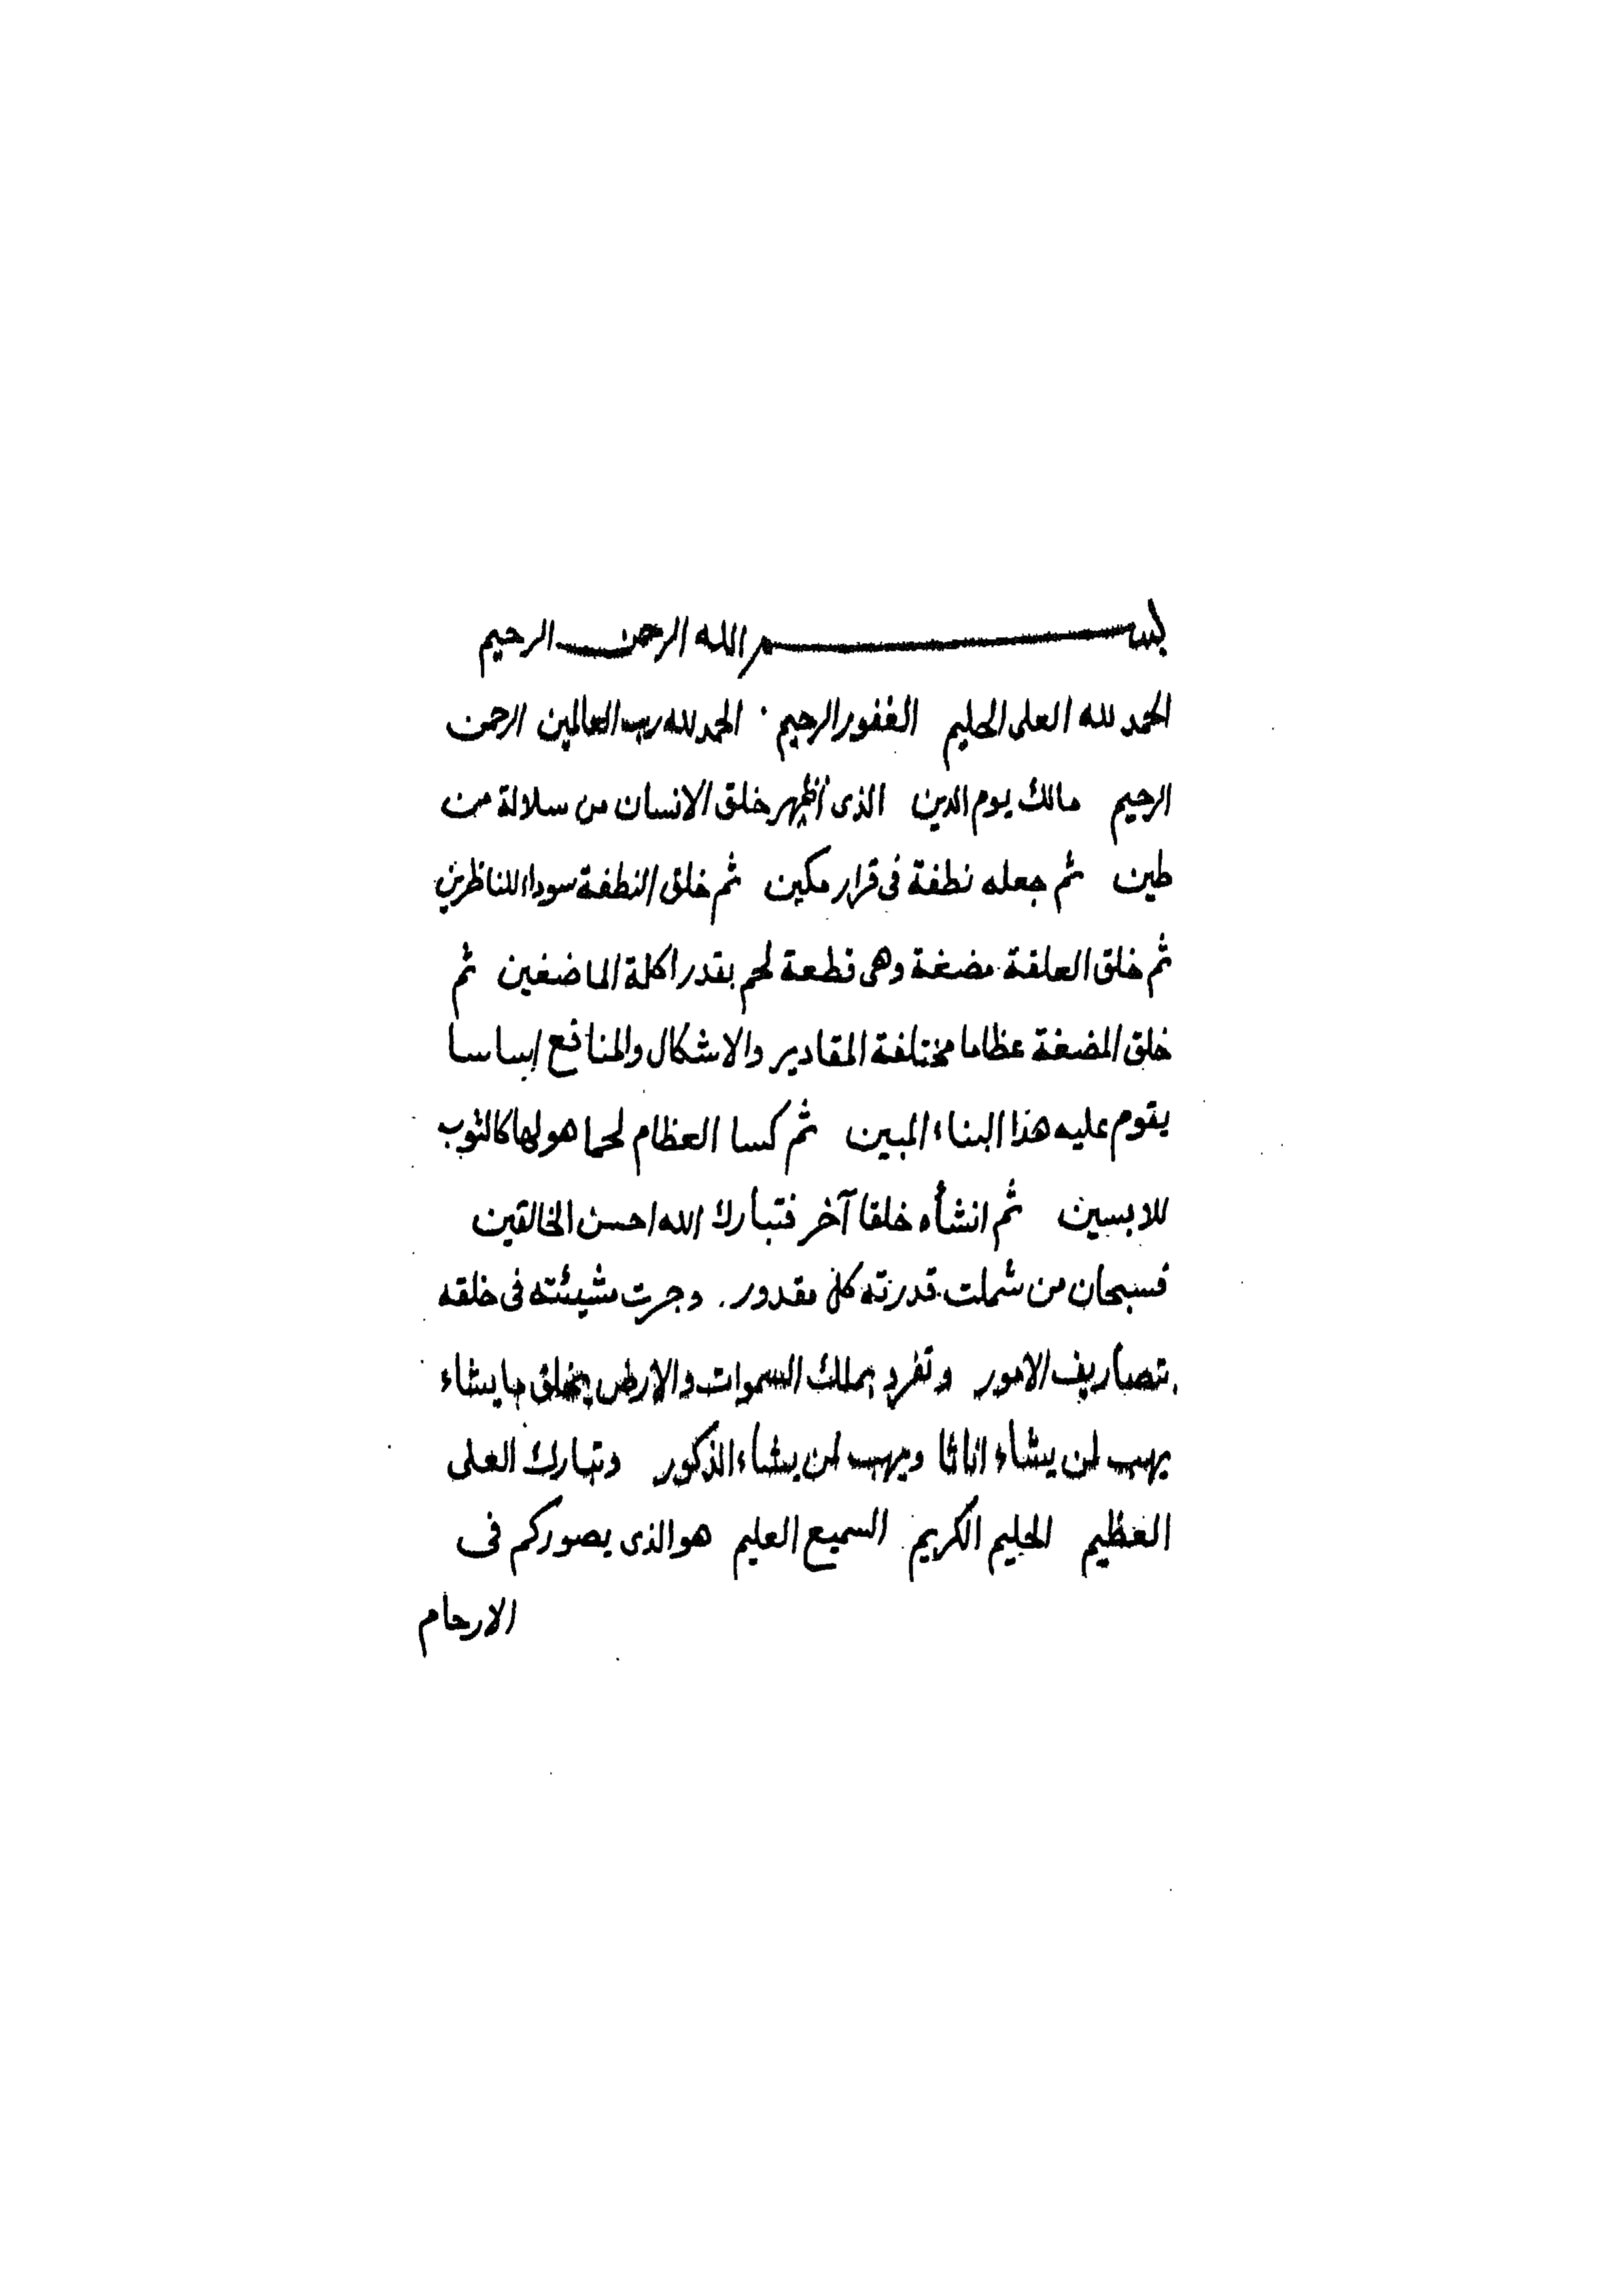 بسم الله الرحمن الرحيم
الحمد لله العلى الحليم الغفور الرحيم . الحمد لله رب العالمين الرحمن
الرحيم مالك يوم الدين الذى اظهر خلق الانسان من سلالة من
طين ثم جعله نطفة فى قرار مكين ثم خلق النطفة سوداء للناظرين
ثم خلق العلقة مضغة وهى قطعة لحم بقدر اكلة الماضغين ثم
خلق المضغة عظاما مختلفة المقادير والاشكال والمنافع اساسا
يقوم عليه هذا البناء المبين ثم كسا العظام لحما هو لها كالثوب
للابسين ثم انشأه خلقا آخر فتبارك الله احسن الخالقين
فسبحان من شملت قدرته كل مقدور . وجرت مشيئته فى خلقه
بتصاريف الامور وتفرد بملك السموات والارض يخلق ما يشاء
يهب لمن يشاء اناثا ويهب لمن يشاء الذكور وتبارك العلى
العظيم الحليم الكريم السميع العليم هو الذى يصوركم فى
الارحام